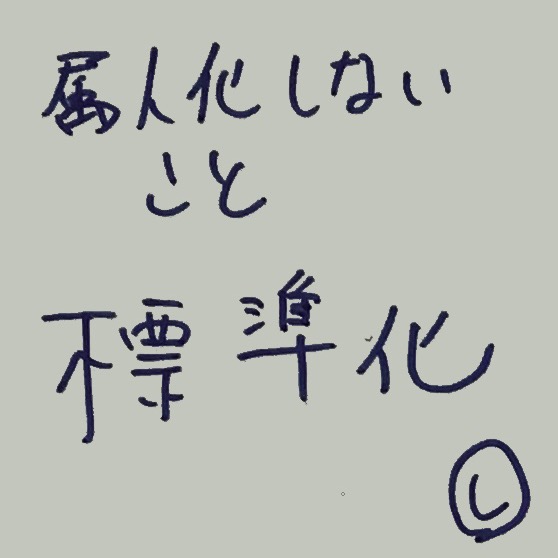 属人化しない
こと
標準化
Ⓛ